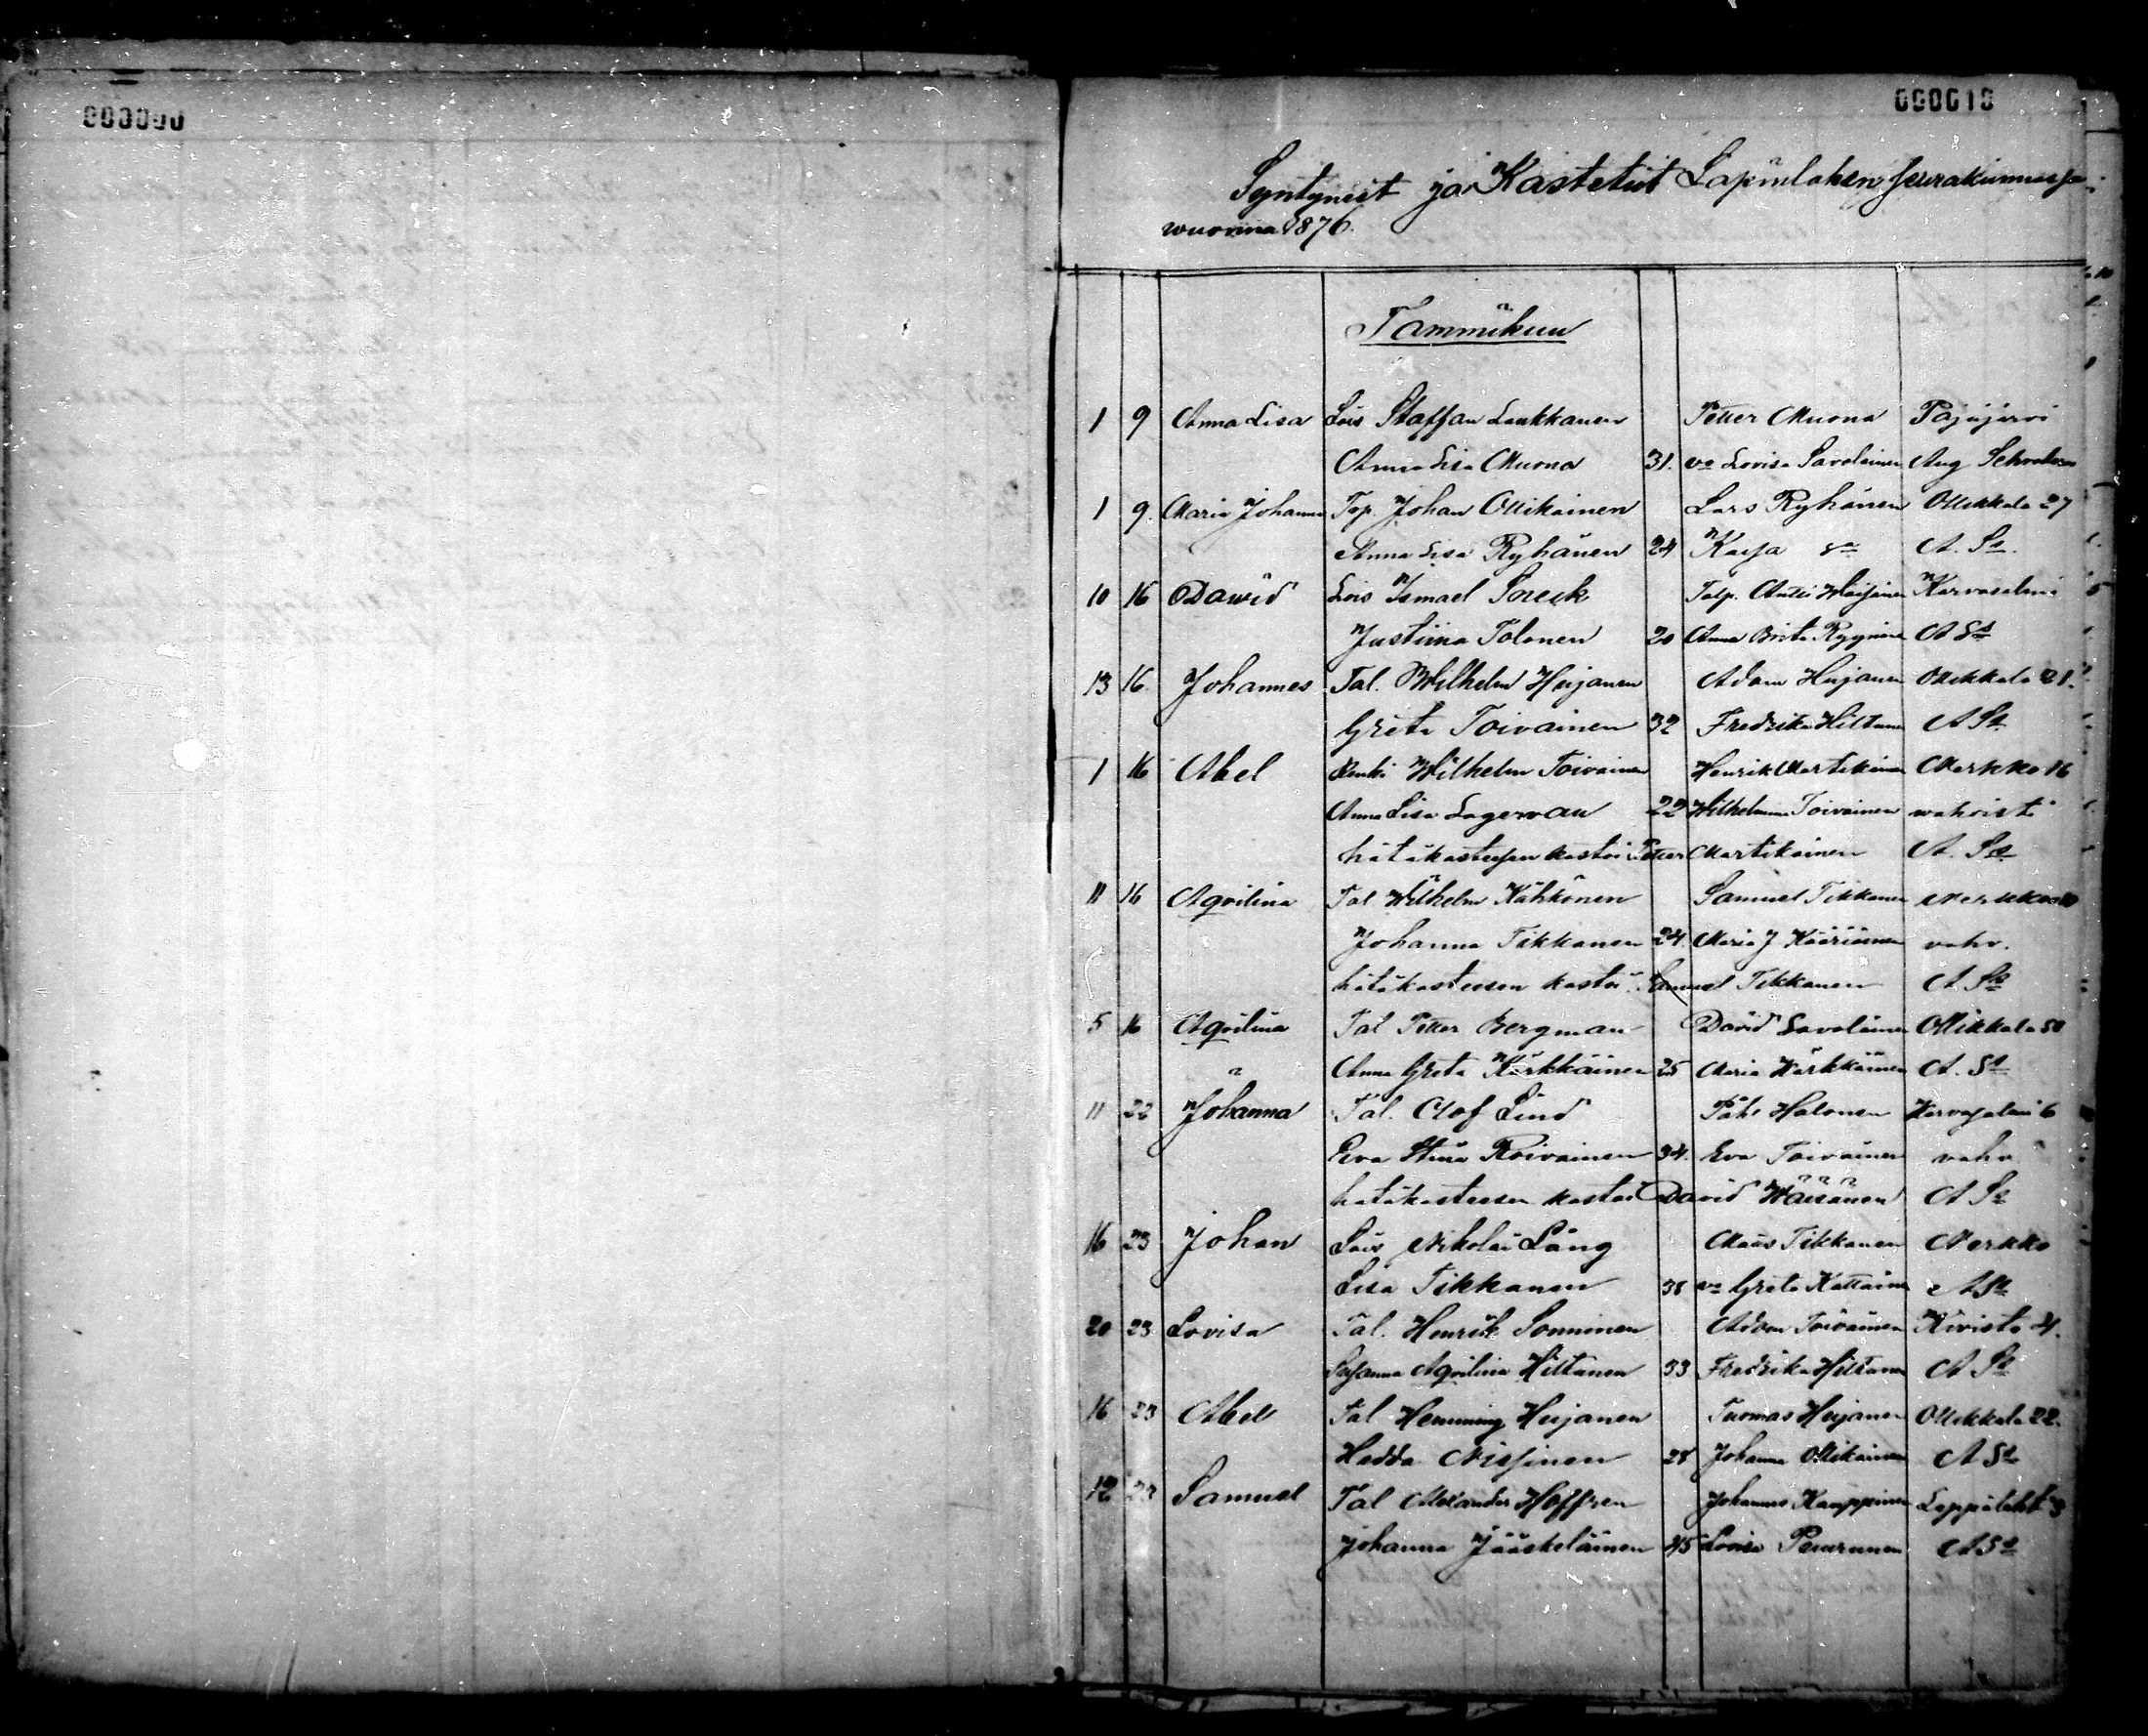 000000
000010
Syntyneet ja Kastetut Lapinlahen seurakunnassa
wuonna 1876.
Tammikuu
1 9 Anna Lisa Lois Staffan Laukkanen Petter Muona Pajujärvi
Anna Lisa Muona 31. va Lovisa Savolainen Aug
1 9. Maria Johanna Top. Johan Ollikainen Lars Ryhänen Ollikkala 27
Anna Lisa Ryhänen 24 Kaisa A. Sn.
10 16 Dawid Lois Ismael Soreck Talp. Antti Karvasalmi 5
Justiina Tolonen 20 Anna Brita Ryynänen A Sn
13 16. Johannes Tal. Wilhelm Hujanen Adam Hujanen Ollikkala 21.
Greta Toivainen 32 Fredrika Hiltunen A Sn
1 16 Abel Renki Wilhelm Toivainen Henrik Martikainen Nerkko 16
Anna Lisa Lagerman 22 Wilhelmina Toivainen wahvisti
hätäkasteesen kastoi Petter Martikainen A. Sn
11 16 Aqvilina Tal Wilhelm Kähkönen Samuel Tikkanen Nerkko
Johanna Tikkanen 24. Maria J Kääriäinen vahv.
hätäkasteesen kastoi Samuel Tikkanen A Sn
5 16 Aqvilina Tal Petter Bergman David Savolainen Ollikkala 50
Anna Greta Kärkkäinen 25 Maria Kärkkäinen A. Sn
11 22 Johanna Tal. Olof Lind Påhl Halonen Karvasalmi 6
Eva Stina Roivainen 34. Eva Toivainen vahv
hätäkasteesen kastoi David Wäisänen A Sn
16 23 Johan Lois Nikolai Lång Maus Tikkanen Nerkko
Lisa Tikkanen 38 va Greta Kattainen A Sn
20 23 Lovisa Tal. Henrik Sonninen Adam Toivainen Kivistö 4.
Susanna Aqvilina Hiltunen 33 Fredrika Hiltunen A Sn
16 23 Abel Tal Hemming Hujanen Tuomas Hujanen Ollikkala 22.
Hedda Nissinen 28 Johanna Ollikainen A Sn
12 23 Samuel Tal Alexander Hoffren Johannes Kauppinen Leppälahti 3
Johanna Jääskeläinen 45 Lovisa Peurunen A Sn